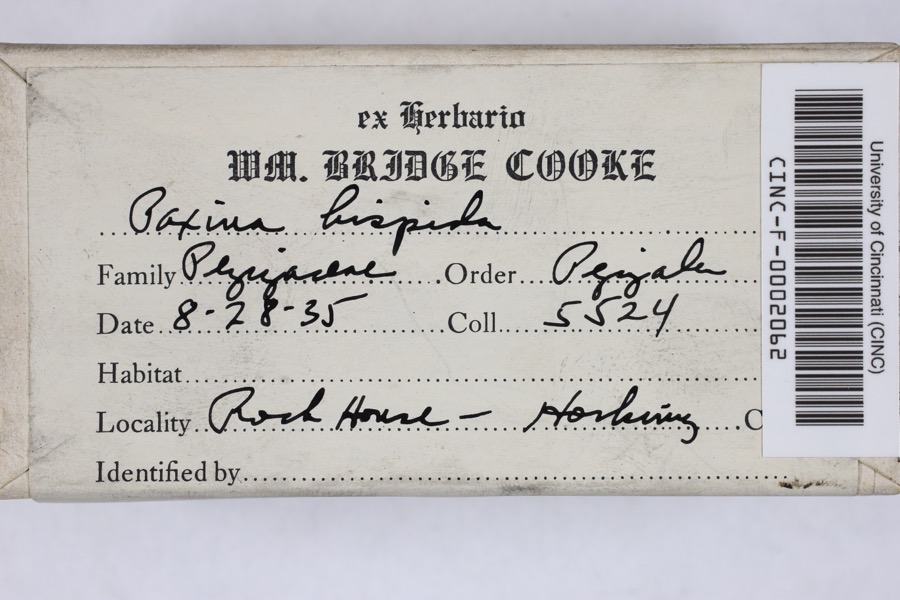 ex Herbario
WM. BRIDGE COOKE
Paxina hispida
Family Pezizaceae Order Pezizales
Date 8-28-35 Coll. 5524
Habitat
Locality Rock House - Hocking C
Identified by
CINC-F-0002062
University of Cincinnati (CINC)